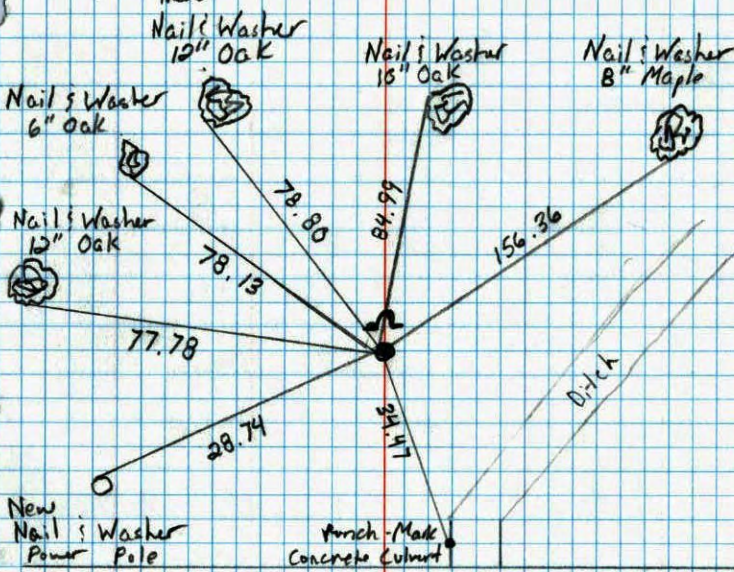 Nail & Washer
12" Oak
Nail & Washer
10" Oak
Nail & Washer
8" Maple
Nail & Washer
6" Oak
Nail & Washer
12" Oak
78.80
84.99
156.36
78.13
77.78
28.74
34.47
Ditch
New
Nail & Washer
Power Pole
Punch-Mark
Concrete Culvert